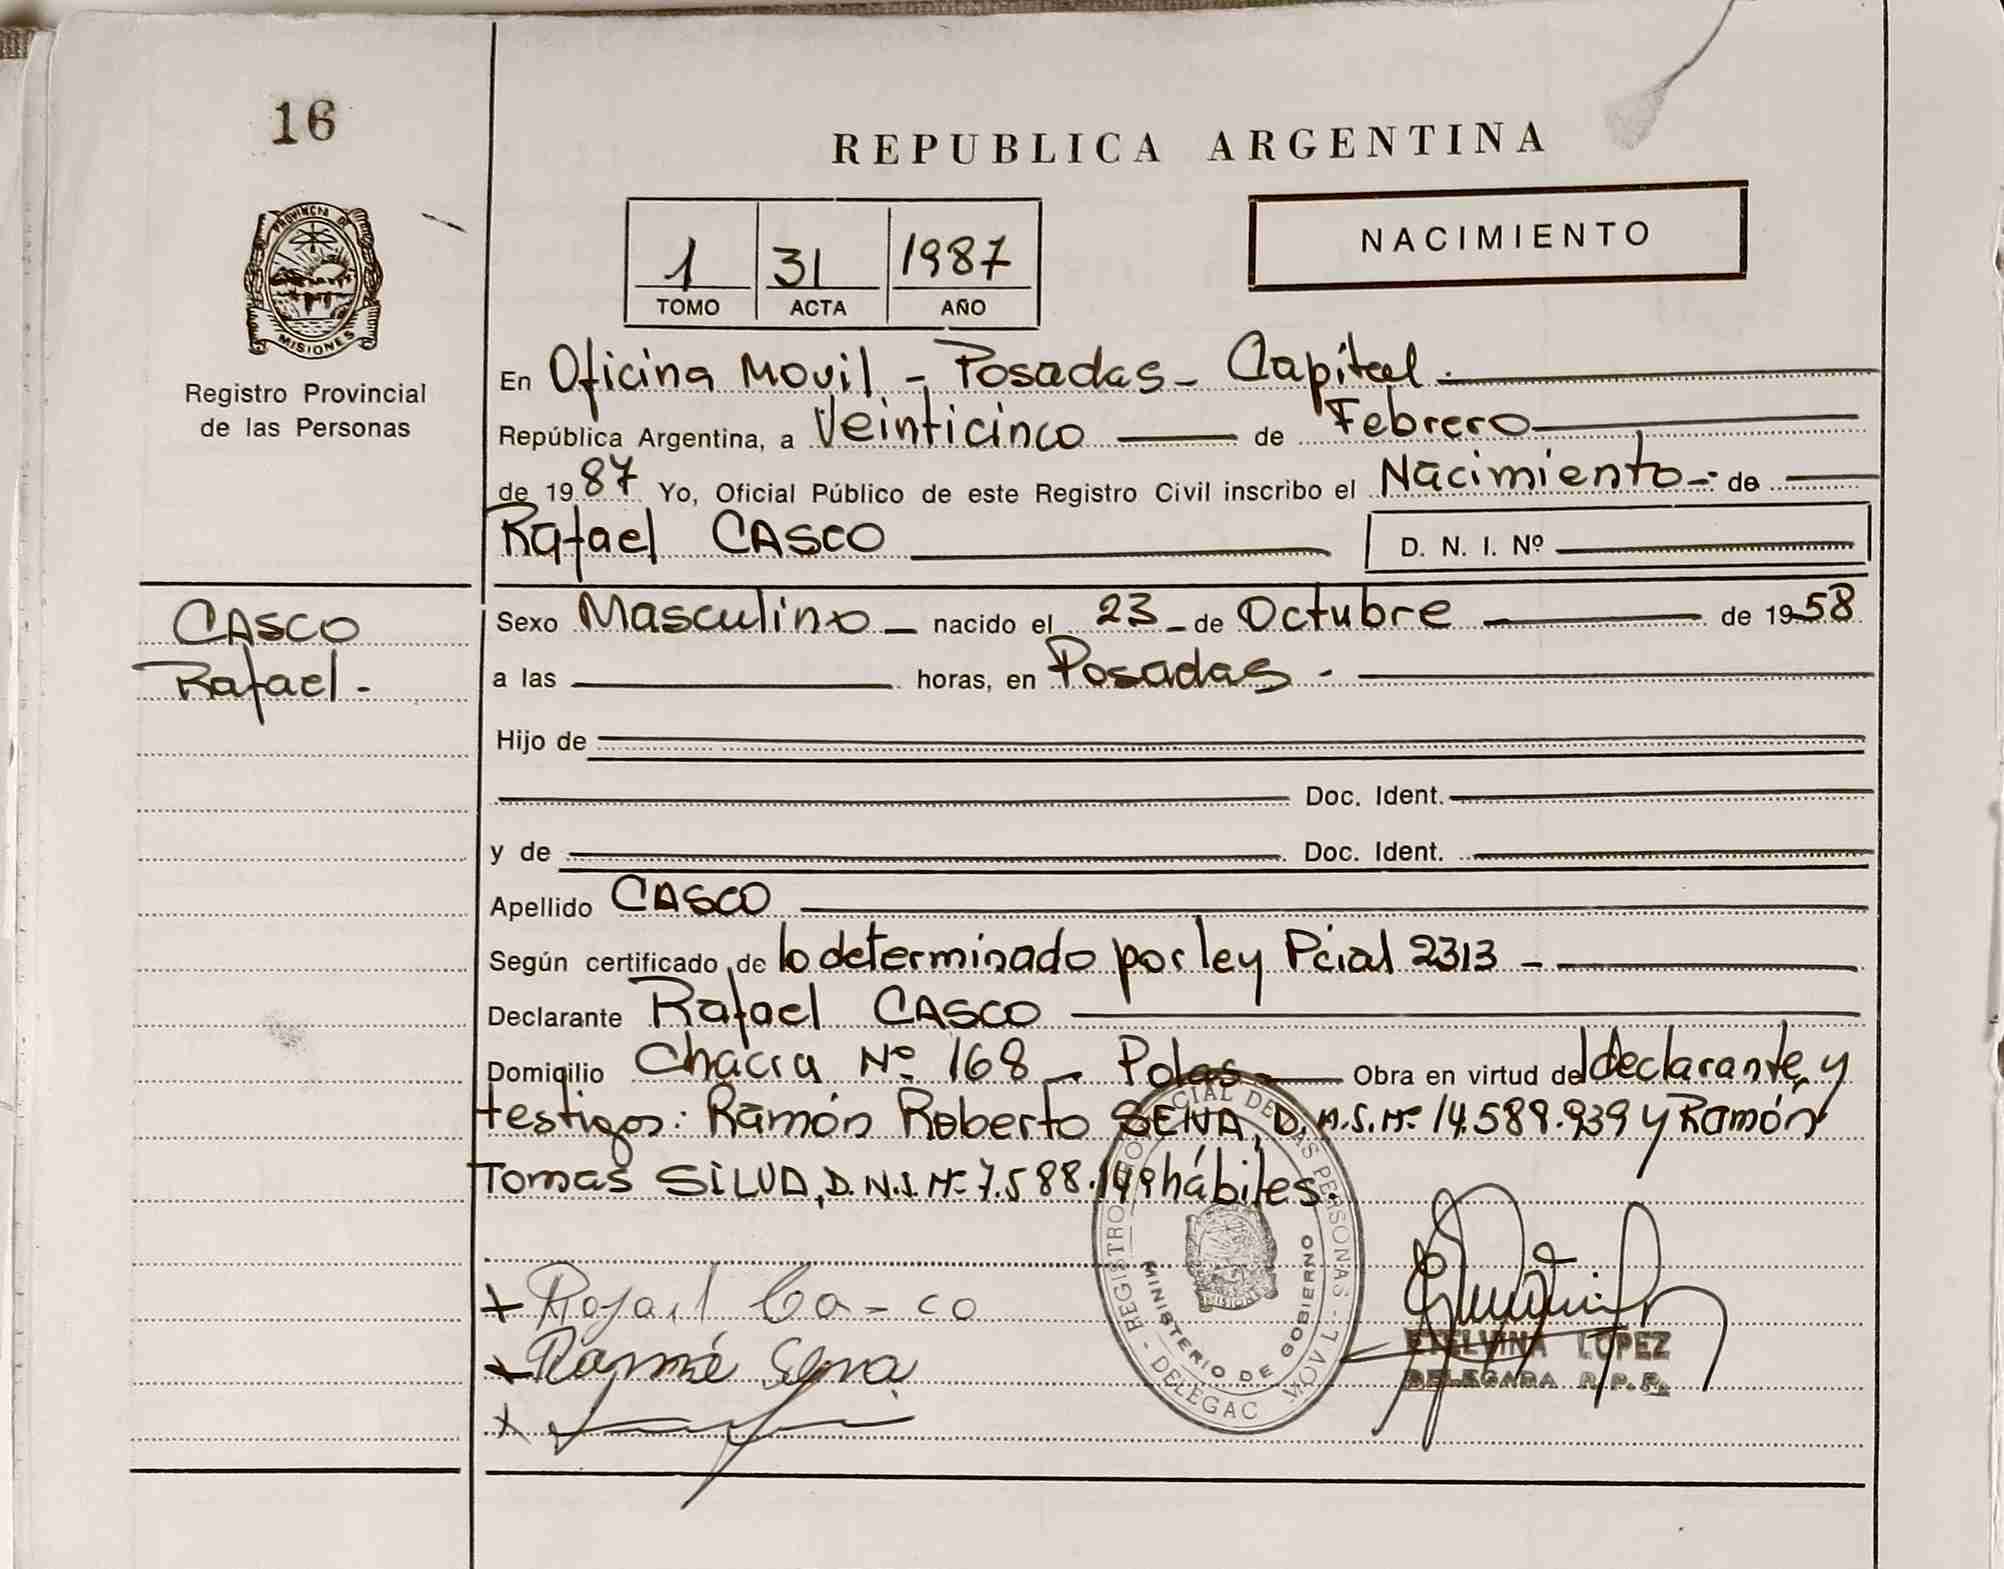 16
REPUBLICA ARGENTINA
PROVINCIA DE
MISIONES
Registro Provincial
de las Personas
1 31 1987
TOMO ACTA AÑO
NACIMIENTO
En Oficina Movil - Posadas - Capital.
República Argentina, a Veinticinco de Febrero
de 1987 Yo, Oficial Público de este Registro Civil inscribo el Nacimiento - de
Rafael CASCO D. N. I. Nº
CASCO
Rafael -
Sexo Masculino - nacido el 23 - de Octubre de 1958
a las horas, en Posadas -
Hijo de
Doc. Ident.
y de Doc. Ident.
Apellido CASCO
Según certificado de lo determinado por ley Pcial 2313 -
Declarante Rafael CASCO
Domicilio Chacra Nº 168 - Pdas - Obra en virtud del declarante y
testigos: Ramón Roberto SENA, D.N.I. Nº 14.589.939 y Ramón
Tomas SILVA, D.N.I. Nº 7.588.149 hábiles.
Rafael Ca-co
Ramón Sena
REGISTRO PROVINCIAL DE LAS PERSONAS - DELEGAC MOVIL -
MINISTERIO DE GOBIERNO
MISIONES
ETELVINA LOPEZ
DELEGADA R.P.P.